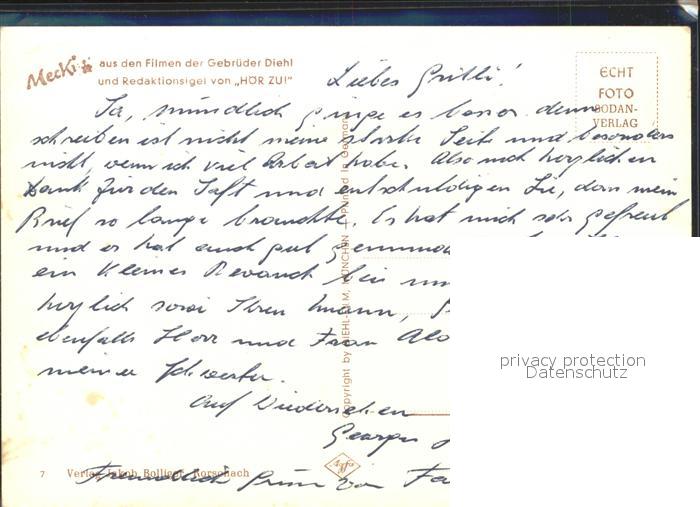 Mecki aus den Filmen der Gebrüder Diehl
und Redaktionsigel von „HÖR ZU!“
ECHT
FOTO
BODAN-
VERLAG
Liebes Gritli!
Ja, mündlich ginge es besser denn
schreiben ist nicht meine starke Seite und besonders
nicht, wenn ich viel Arbeit habe. Also noch herzlichen
Dank für den Saft und entschuldigen Sie, dass mein
Brief so lange brauchte. Es hat mich sehr gefreut
und es hat auch gut
ein kleines Revanch bei
herzlich sowie Ihren Mann,
ebenfalls Herr und Frau
meiner Schwester.
Auf Wiedersehen
Georges
Copyright by DIEHL-FILM, MÜNCHEN — Printed in Germany
Agfa
7 Verlag Jakob Bolliger, Rorschach
Freundlich von
privacy protection
Datenschutz